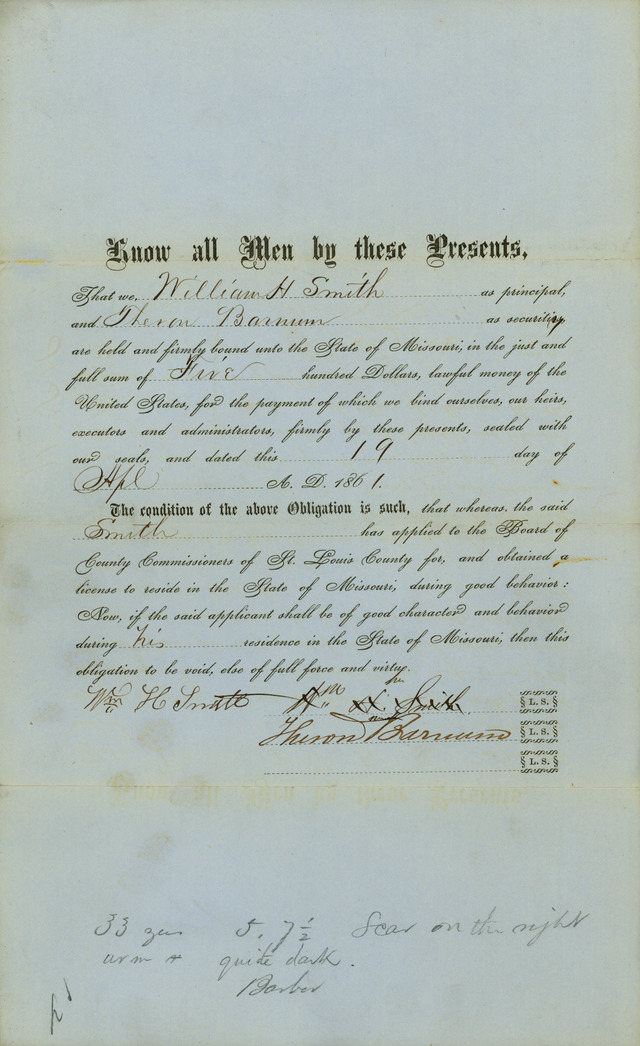 Know all Men by these Presents,
That we, William H Smith as principal,
and Theron Barnum as security
are held and firmly bound unto the State of Missouri, in the just and
full sum of Five hundred Dollars, lawful money of the
United States, for the payment of which we bind ourselves, our heirs,
executors and administrators, firmly by these presents, sealed with
our seals, and dated this 19 day of
Apl A. D. 1861.
The condition of the above Obligation is such, that whereas, the said
Smith has applied to the Board of
County Commissioners of St. Louis County for, and obtained a
license to reside in the State of Missouri, during good behavior:
Now, if the said applicant shall be of good character and behavior
during his residence in the State of Missouri, then this
obligation to be void, else of full force and virtue.
Wm H Smith Wm H Smith § L. S. §
Theron Barnum § L. S. §
§ L. S. §
33 yrs 5. 7 1/2 Scar on the right
arm + quite dark.
Barber